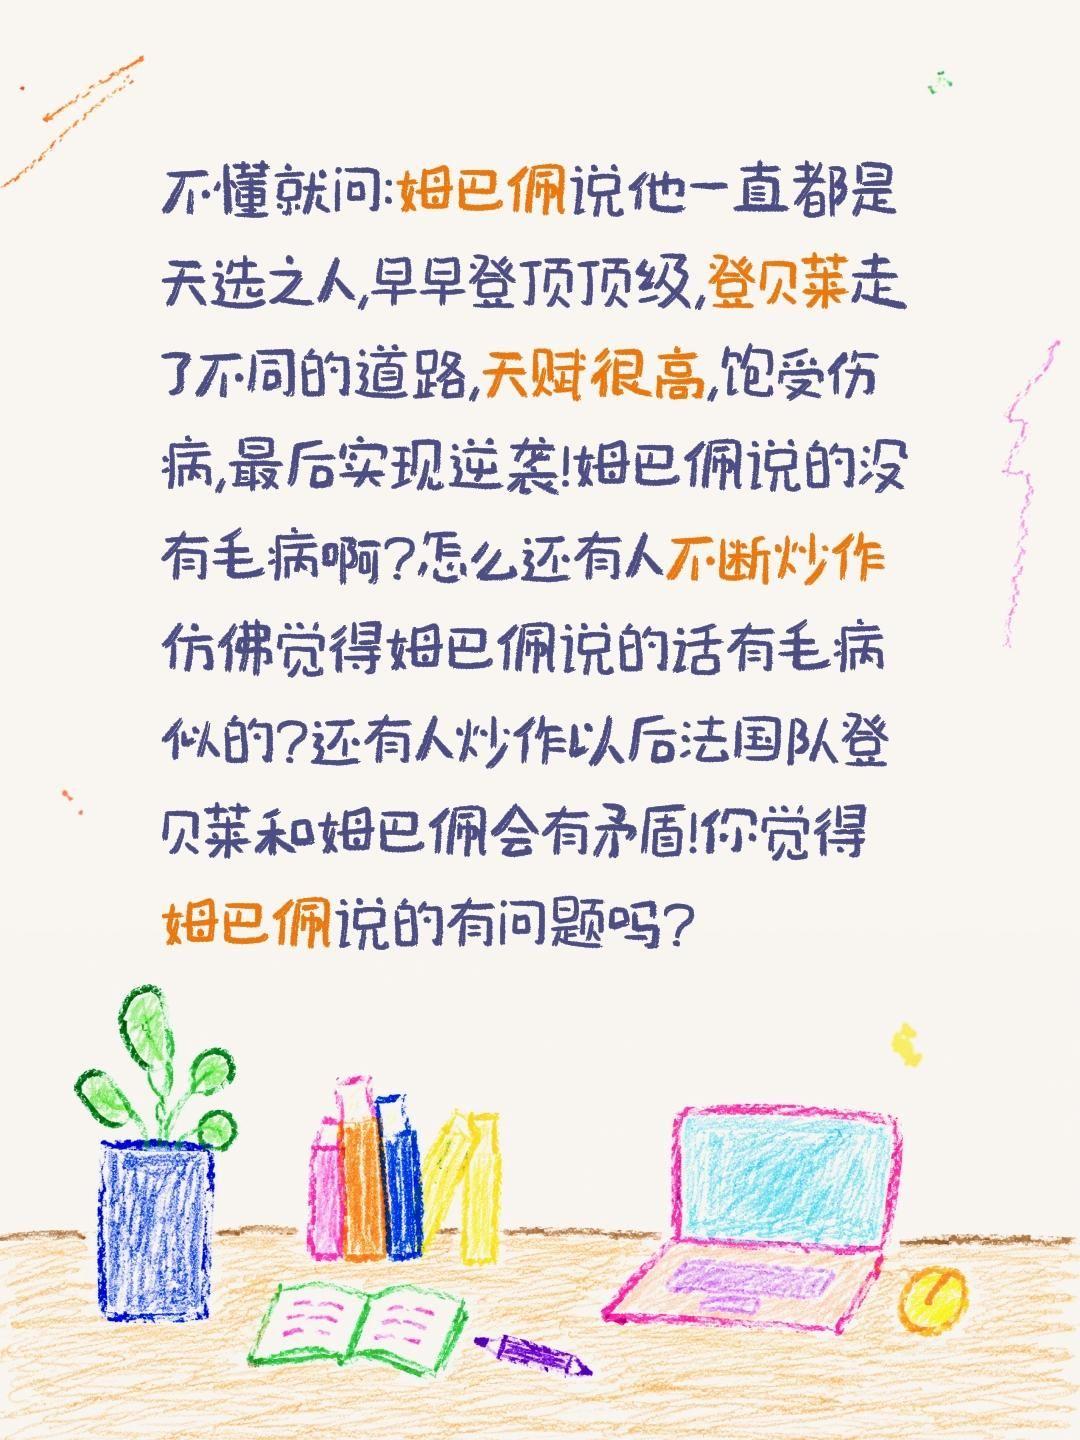 不懂就问:姆巴佩说他一直都是
天选之人,早早登顶顶级,登贝莱走
了不同的道路,天赋很高,饱受伤
病,最后实现逆袭!姆巴佩说的没
有毛病啊?怎么还有人不断炒作
仿佛觉得姆巴佩说的话有毛病
似的?还有人炒作以后法国队登
贝莱和姆巴佩会有矛盾!你觉得
姆巴佩说的有问题吗?